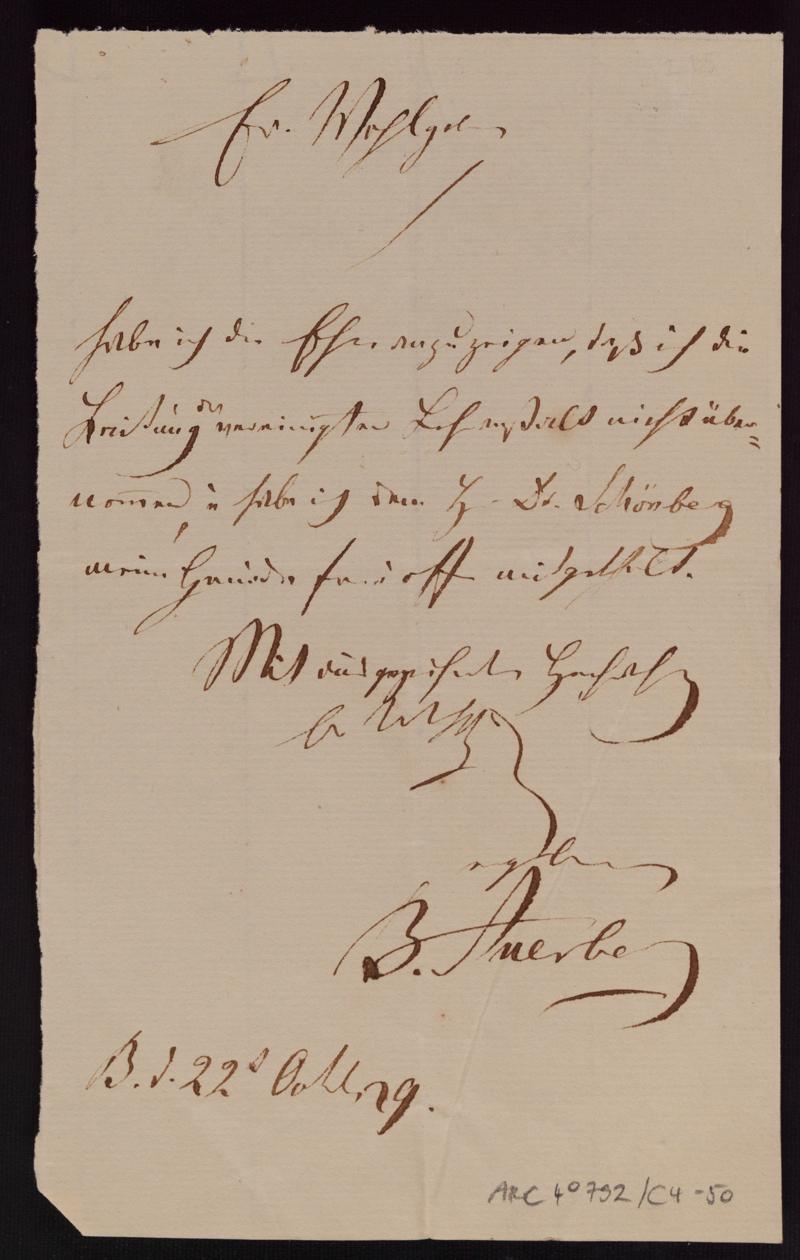 Ew. Wohlgeb
habe ich die Ehre anzuzeigen, daß ich die
Leitung der vereinigten Lehranstalt nicht über=
nommen, u habe ich dem H. Dr. Schönberg
meine Gründe
mitgetheilt.
Mit ausgezeichneter Hochacht
ergeben
B. Auerbach
B. d. 22t Octb. 29.
ARC 4° 792/C4-50